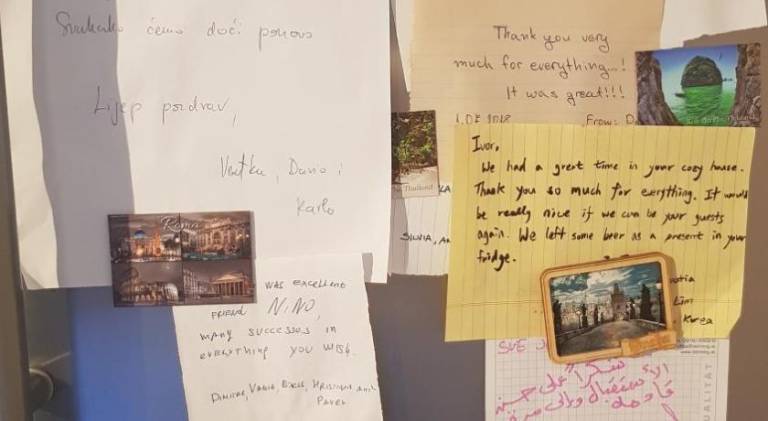 Svakako ćemo doći ponovo
Lijep pozdrav,
Dario i
Karlo
Thank you very
much for everything...!
It was great!!!
From: D
Thailand
SILVIA, A
Ivor,
We had a great time in your cozy house.
Thank you so much for everything. It would
be really nice if we can be your guests
again. We left some beer as a present in your
fridge.
oatia
Lim
Korea
Roma
WAS EXCELLENT
FRIEND NINO,
MANY SUCCESSES IN
EVERYTHING YOU WISH.
DIMITAR,
HRISTIYAN AND
PAVEL
شكراً على حسن
الأستقبال
QUALITÄT